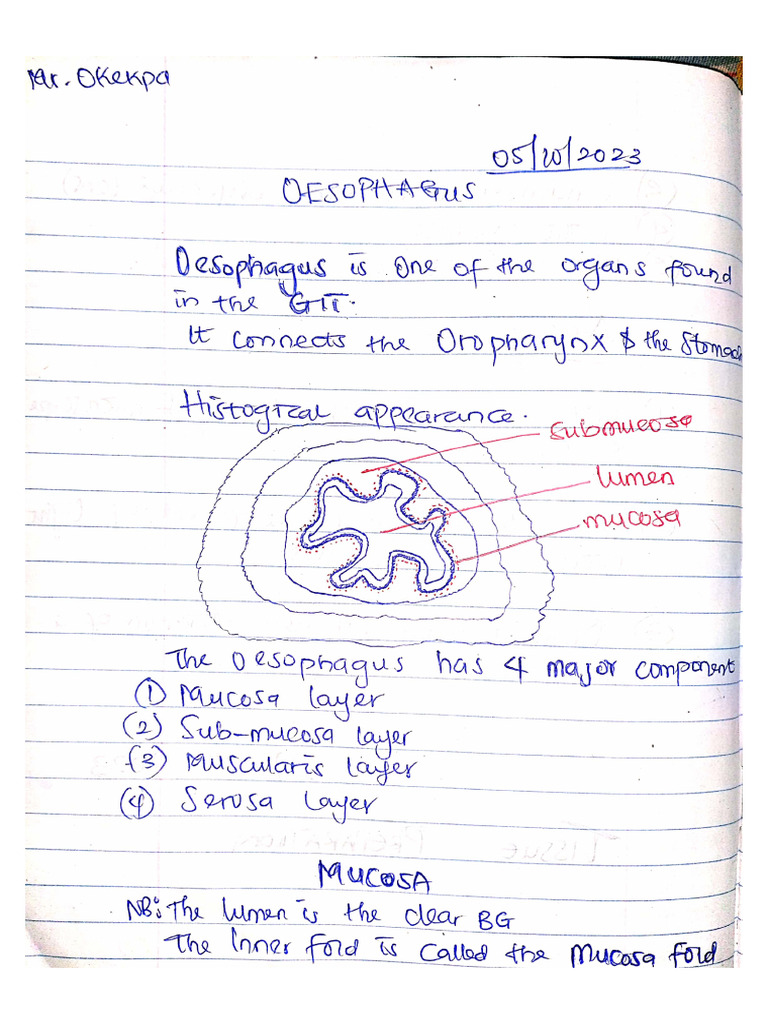 Mr. Okekpa
05/10/2023
OESOPHAGUS
Oesophagus is One of the organs found
in the GIT.
It connects the Oropharynx & the Stomach
Histogical appearance.
submucosa
lumen
mucosa
The Oesophagus has 4 major component
(1) Mucosa layer
(2) Sub-mucosa layer
(3) Muscularis layer
(4) Serosa layer
MUCOSA
NB: The lumen is the clear BG
The Inner fold is called the Mucosa fold